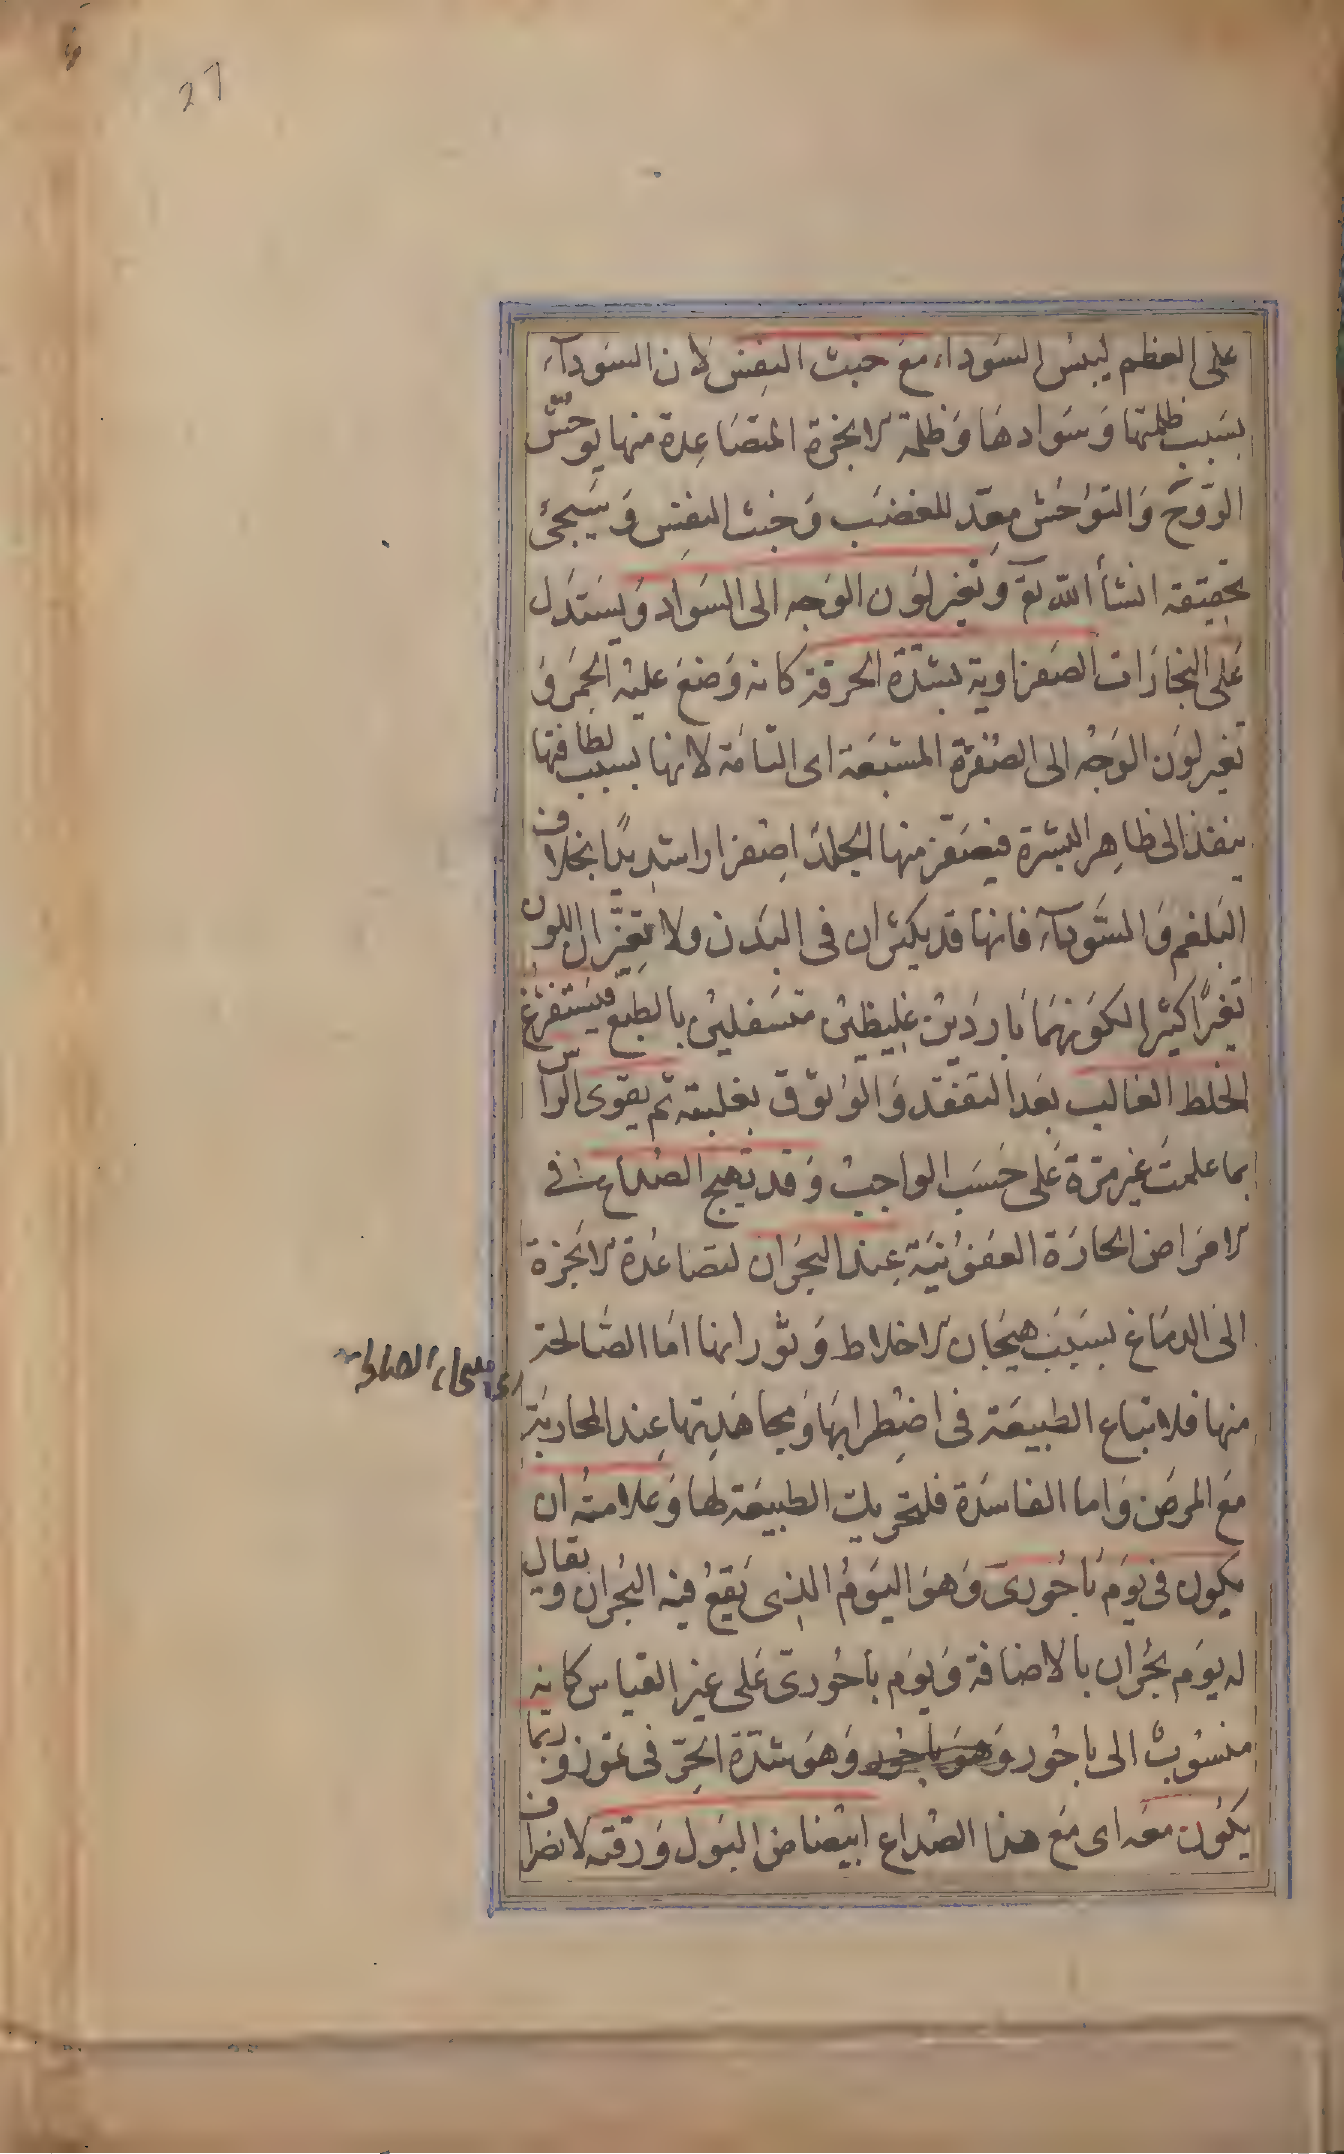 27
على العظم ليبس السوداء مع خبث النفس لان السودآء
بسبب ظلمتها وسوادها وظلمة الابخرة المتصاعدة منها يوحش
الروح والتواحش معد للغضب وخبث النفس وسيجئ
تحقيقه انشأ الله تع وتغير لون الوجه الى السواد ويستدل
على البخارات الصفراوية بشدة الحرقة كانه وضع عليه الجمر و
تغير لون الوجه الى الصفرة المشبعة اى التامة لانها بسبب لطافتها
ينفذ الى ظاهر البشرة فيصفر منها الجلد اصفرارا شديدا بخلاف
البلغم والسودآء فانها قد يكثران فى البدن ولا يغيران اللون
تغيرا كثيرا لكونهما باردين غليظين متسفلين بالطبع فيستفرغ
الخلط الغالب بعد التفقد والوثوق بغلبته ثم يقوى الرأس
بما علمت غير مرة على حسب الواجب وقد تهيج الصداع فى
الامراض الحارة العفونية عند البحران لتصاعدة الابخرة
الى الدماغ بسبب هيجان الاخلاط وثورانها اما الصالحة
منها فلاتباع الطبيعة فى اضطرابها ومجاهدتها عند المحاربة
مع المرض واما الفاسدة فلتحريك الطبيعة لها وعلامته ان
يكون فى يوم باحورى وهو اليوم الذى يقع فيه البحران ويقال
له يوم بحران بالاضافة ويوم باحورى على غير القياس كانه
منسوب الى باحور وهو باحور وهو شدة الحر فى تموز وربما
يكون معه اى مع هذا الصداع ابيضاض البول ورقته لانصراف